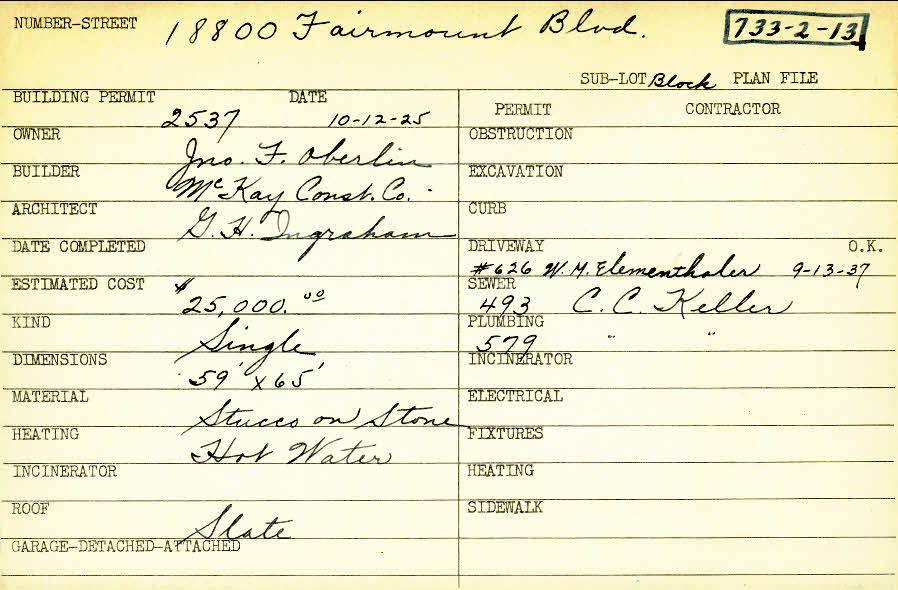 NUMBER-STREET 18800 Fairmount Blvd. 733-2-13
SUB-LOT Block PLAN FILE
BUILDING PERMIT 2537 DATE 10-12-25
OWNER Jno. F. Oberlin
BUILDER McKay Const. Co.
ARCHITECT G. H. Ingraham
DATE COMPLETED
ESTIMATED COST $25,000.00
KIND Single
DIMENSIONS 59' x 65'
MATERIAL Stucco on Stone
HEATING Hot Water
INCINERATOR
ROOF Slate
GARAGE-DETACHED-ATTACHED
PERMIT CONTRACTOR
OBSTRUCTION
EXCAVATION
CURB
DRIVEWAY O.K.
#626 W. M. Elementhaler 9-13-37
SEWER
493 C. C. Keller
PLUMBING
579 " "
INCINERATOR
ELECTRICAL
FIXTURES
HEATING
SIDEWALK